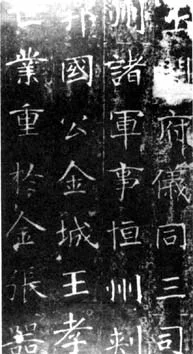 開府儀同三司
州諸軍事恒州刺
國公金城王孝
業重於金張器